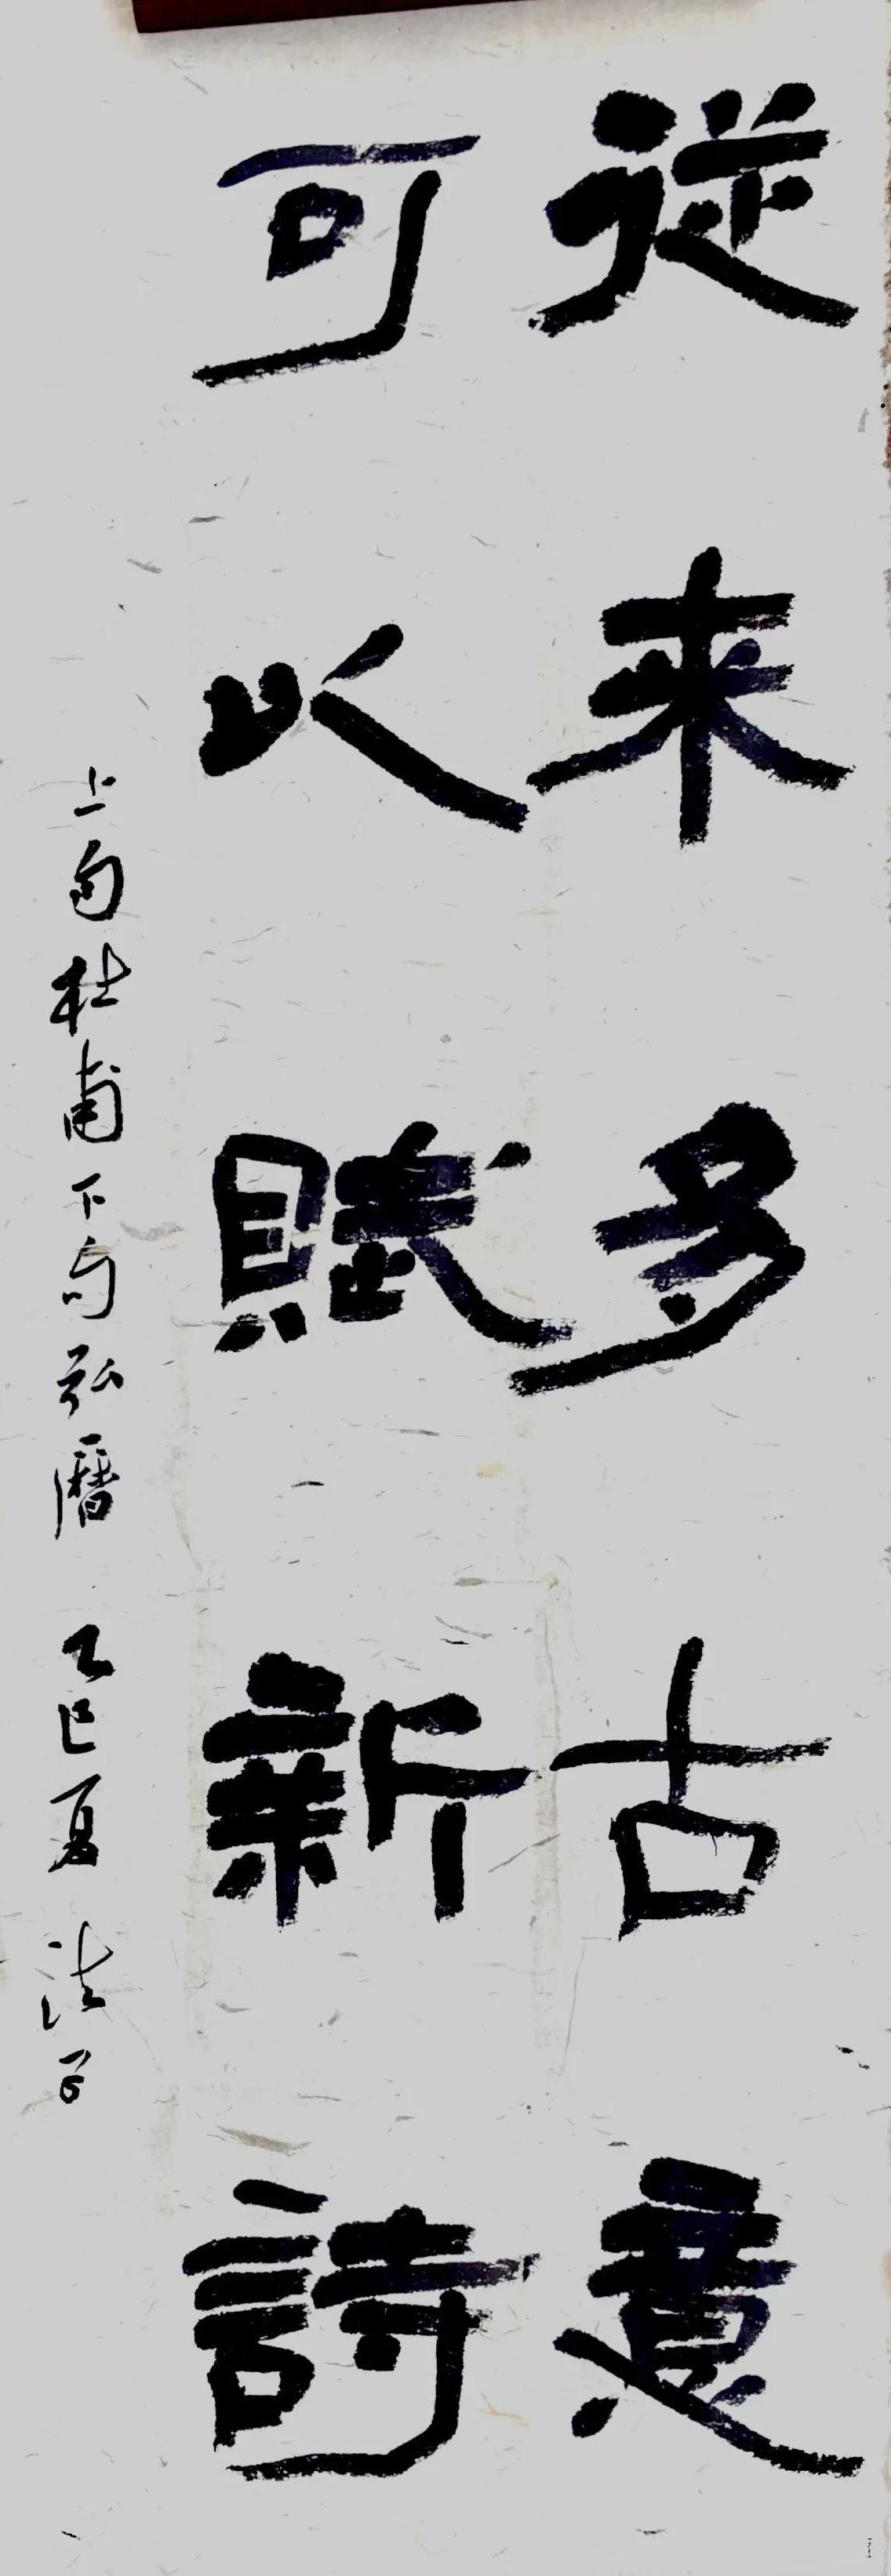 從来多古意
可以賦新詩
上句杜甫下句弘曆 乙巳夏